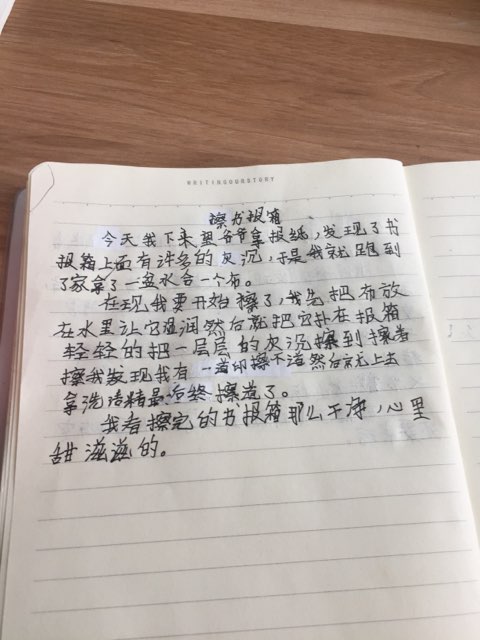 WRITINGOURSTORY
擦书报箱
今天我下来望爷爷拿报纸,发现了书
报箱上面有许多的灰沉,于是我就跑到
了家拿了一盆水合一个布。
在现我要开始擦了,我先把布放
在水里让它湿润然后就把它扑在报箱
轻轻的把一层层的灰沉擦到擦着
擦我发现我有一道印擦不道然后京无上去
拿洗洁精最冶终擦道了。
我看擦完的书报箱那么干净,心里
甜滋滋的。